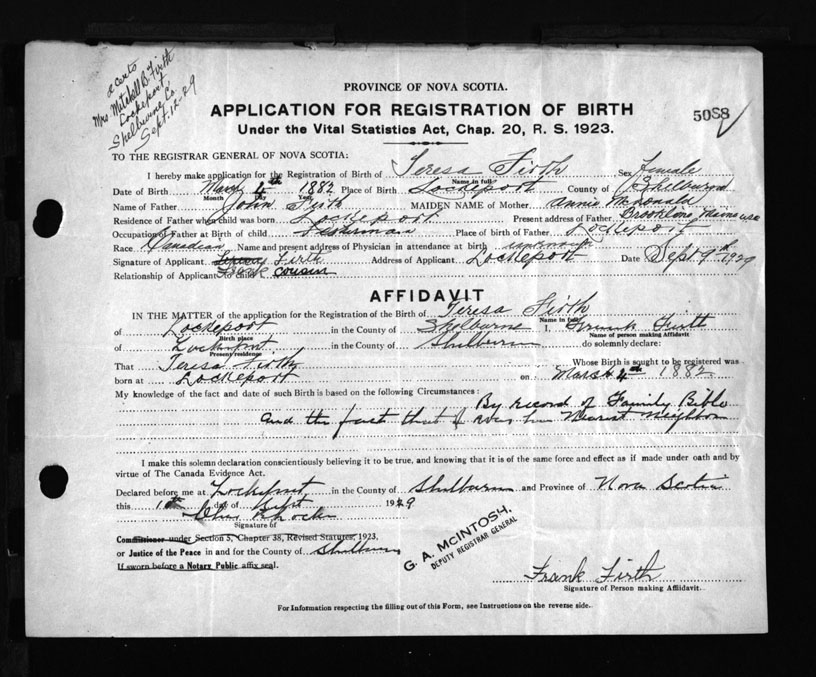 2 certs
Mrs Mitchell B. Firth
Lockeport
Shelburne Co.
Sept. 12-29
PROVINCE OF NOVA SCOTIA.
APPLICATION FOR REGISTRATION OF BIRTH
Under the Vital Statistics Act, Chap. 20, R. S. 1923.
5088
TO THE REGISTRAR GENERAL OF NOVA SCOTIA:
I hereby make application for the Registration of Birth of Teresa Firth Sex Female
Name in full
Date of Birth 4th 1882 Place of Birth Lockeport County of Shelburne
Month Day Year
Name of Father John Firth MAIDEN NAME of Mother Annie McDonald
Residence of Father when child was born Lockeport Present address of Father Brookline
Occupation of Father at Birth of child Fisherman Place of birth of Father Lockeport
Race Canadian Name and present address of Physician in attendance at birth unknown
Signature of Applicant Firth Address of Applicant Lockeport Date Sept 9th 1929
Frank
Relationship of Applicant to child cousin
AFFIDAVIT
IN THE MATTER of the application for the Registration of the Birth of Teresa Firth
Name in full
of Lockeport in the County of Shelburne I, Frank Firth
Birth place Name of person making Affidavit
of Lockeport in the County of Shelburne do solemnly declare:
Present residence
That Teresa Firth Whose Birth is sought to be registered was
born at Lockeport on March 4th 1882
My knowledge of the fact and date of such Birth is based on the following Circumstances:
By record of Family Bible
and the fact that I was her Nearest Neighbour
I make this solemn declaration conscientiously believing it to be true, and knowing that it is of the same force and effect as if made under oath and by
virtue of The Canada Evidence Act.
Declared before me at Lockeport in the County of Shelburne and Province of Nova Scotia
this 10th day of Sept 1929
Signature of
Commissioner under Section 5, Chapter 38, Revised Statutes, 1923,
or Justice of the Peace in and for the County of Shelburne
If sworn before a Notary Public affix seal.
G. A. MCINTOSH,
DEPUTY REGISTRAR GENERAL
Frank Firth
Signature of Person making Affidavit.
For Information respecting the filling out of this Form, see Instructions on the reverse side.